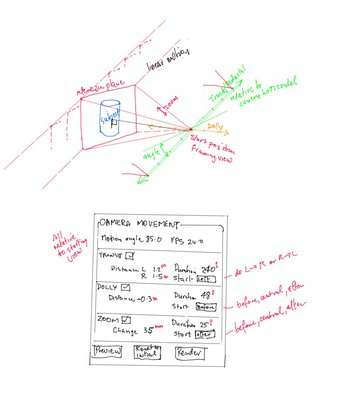 linear motion
reference plane
zoom
subject
relative to
camera horizontal
Dolly
Start position
framing view
angle
All
relative
to starting
view
CAMERA MOVEMENT
Motion angle 35.0 FPS 24.0
TRANS
Distance L 12m Duration 240f
R 1.5m Start Left
do L → R or R → L
DOLLY
Distance -0.3m Duration 48f
Start
before, central, after
ZOOM Duration 25f
Change 35mm Start after
before, central, after
Preview Reset to
initial Render